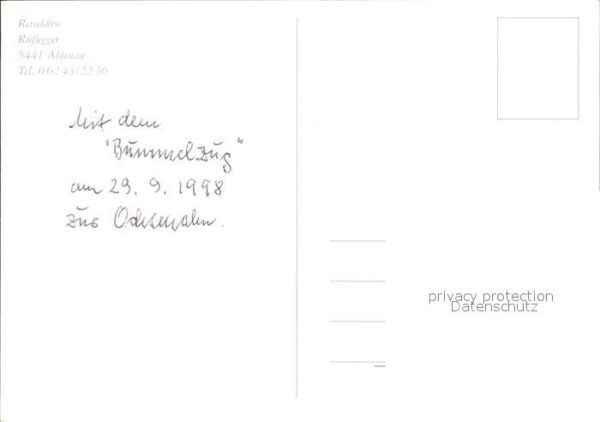 Reisebüro
Rußegger
5441 Abtenau
Tel. 06243/22 36
Mit dem
"Bummelzug"
am 29. 9. 1998
zur
privacy protection
Datenschutz